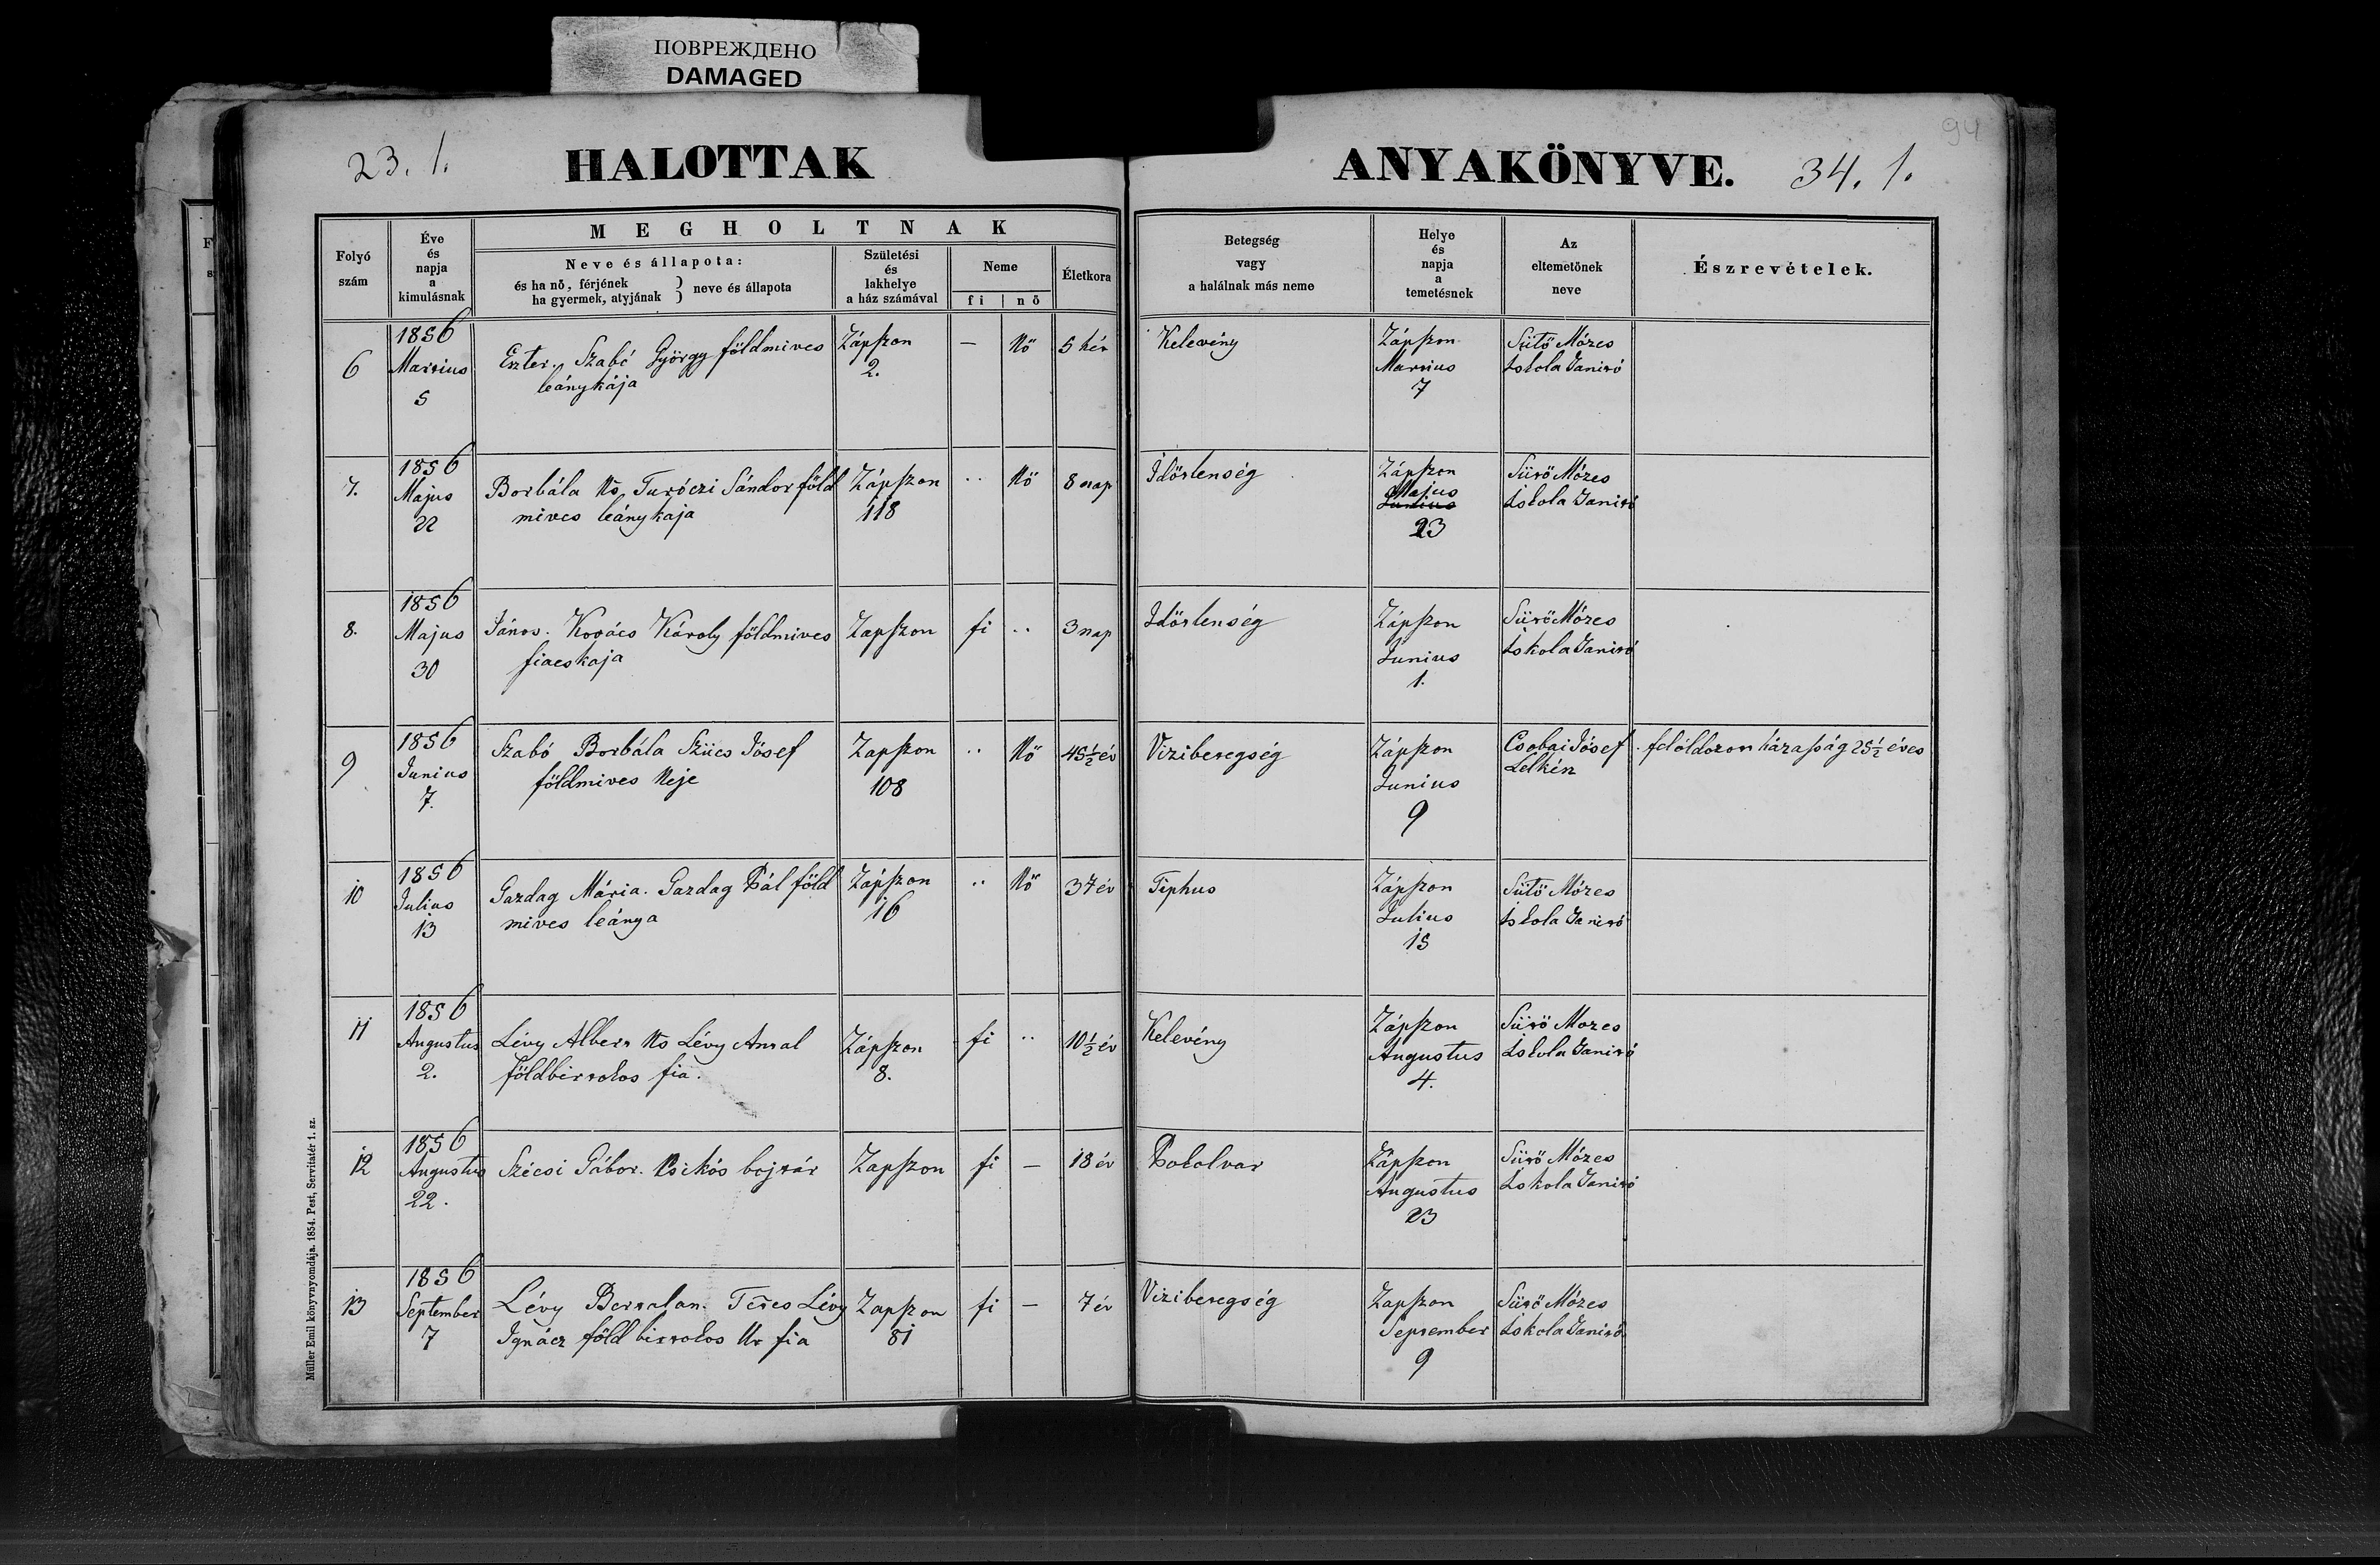 ПОВРЕЖДЕНО
DAMAGED
94
23. l.
HALOTTAK
ANYAKÖNYVE.
34. l.
Folyó
szám
Éve
és
napja
a
kimulásnak
MEGHOLTNAK
Neve és állapota:
és ha nö, férjének
ha gyermek, atyjának } neve és állapota
Születési
és
lakhelye
a ház számával
Neme
fi | nö
Életkora
Betegség
vagy
a halálnak más neme
Helye
és
napja
a
temetésnek
Az
eltemetönek
neve
Észrevételek.
6
1856
Martius
5
Eszter. Szabó György földmives
leánykája
Zápszon
2.
—
Nő
5 hét
Kelevény
Zápszon
Martius
7
Sütő Mózes
Iskola Tanító
7.
1856
Majus
22
Borbála Ns Turóczi Sándor föld
mives leánykaja
Zápszon
118
..
Nő
8 nap
Időtlenség
Zápszon
Majus
Junius
23
Sütő Mózes
Iskola Tanító
8.
1856
Majus
30
János. Kovács Károly földmives
fiacskaja
Zapszon
fi
..
3 nap
Időtlenség
Zápszon
Junius
1.
Sütő Mózes
Iskola Tanitó
9
1856
Junius
7.
Szabó Borbála Szücs Jósef
földmives Neje
Zapszon
108
..
Nő
45½ év
Vizibetegség
Zápszon
Junius
9
Csobai Jósef
Lelkész
feloldozott házasság 25½ éves
10
1856
Julius
13
Gazdag Mária. Gazdag Pál föld
mives leánya
Zápszon
16
..
Nő
37 év
Tiphus
Zápszon
Julius
15
Sütő Mózes
Iskola Tanitó
11
1856
Augustus
2.
Lévy Albert Ns Lévy Antal
földbirtokos fia.
Zápszon
8.
fi
..
10½ év
Kelevény
Zápszon
Augustus
4.
Sütő Mozes
Iskola Tanitó
12
1856
Augustus
22.
Szécsi Gábor. Csikós bojtár
Zapszon
fi
—
18 év
Pokolvar
Zápszon
Augustus
23
Sütő Mózes
Iskola Tanitó
13
1856
September
7
Lévy Bertalan. Lévy
Ignácz földbirtokos Ur fia
Zapszon
81
fi
—
7 év
Vizibetegség
Zapszon
September
9
Sütő Mózes
Iskola Tanitó
Müller Emil könyvnyomdája. 1854. Pest, Servitatér 1. sz.